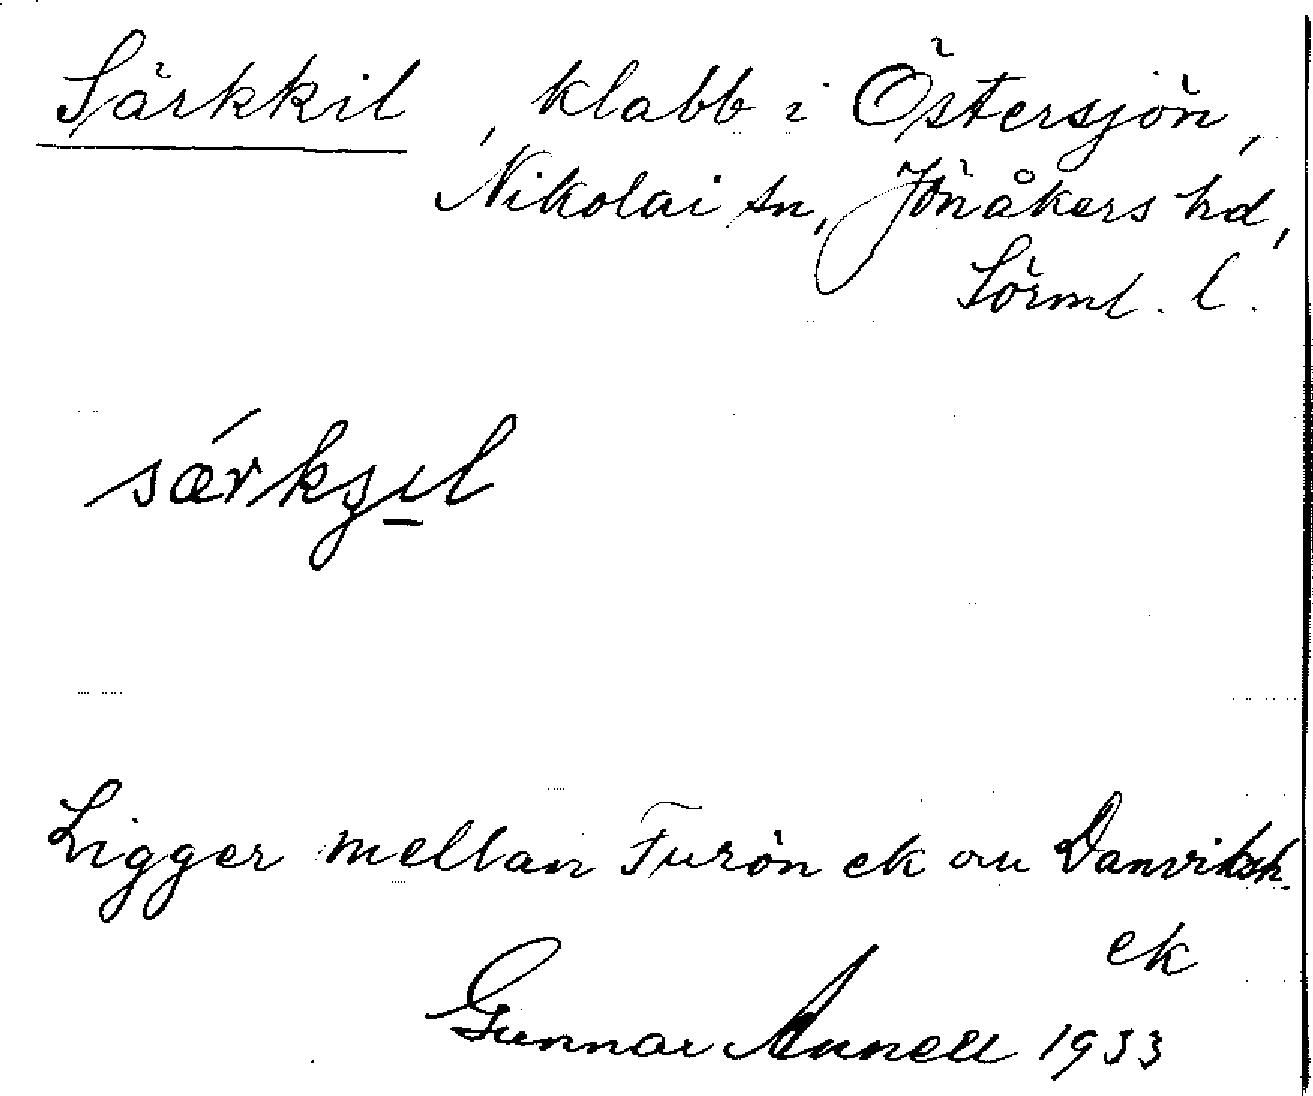 Särkkil, klabb i Östersjön,
Nikolai sn, Jönåkers hd,
Sörml. l.
Ligger mellan Furön ek au
ek
Gunnar Annell 1933